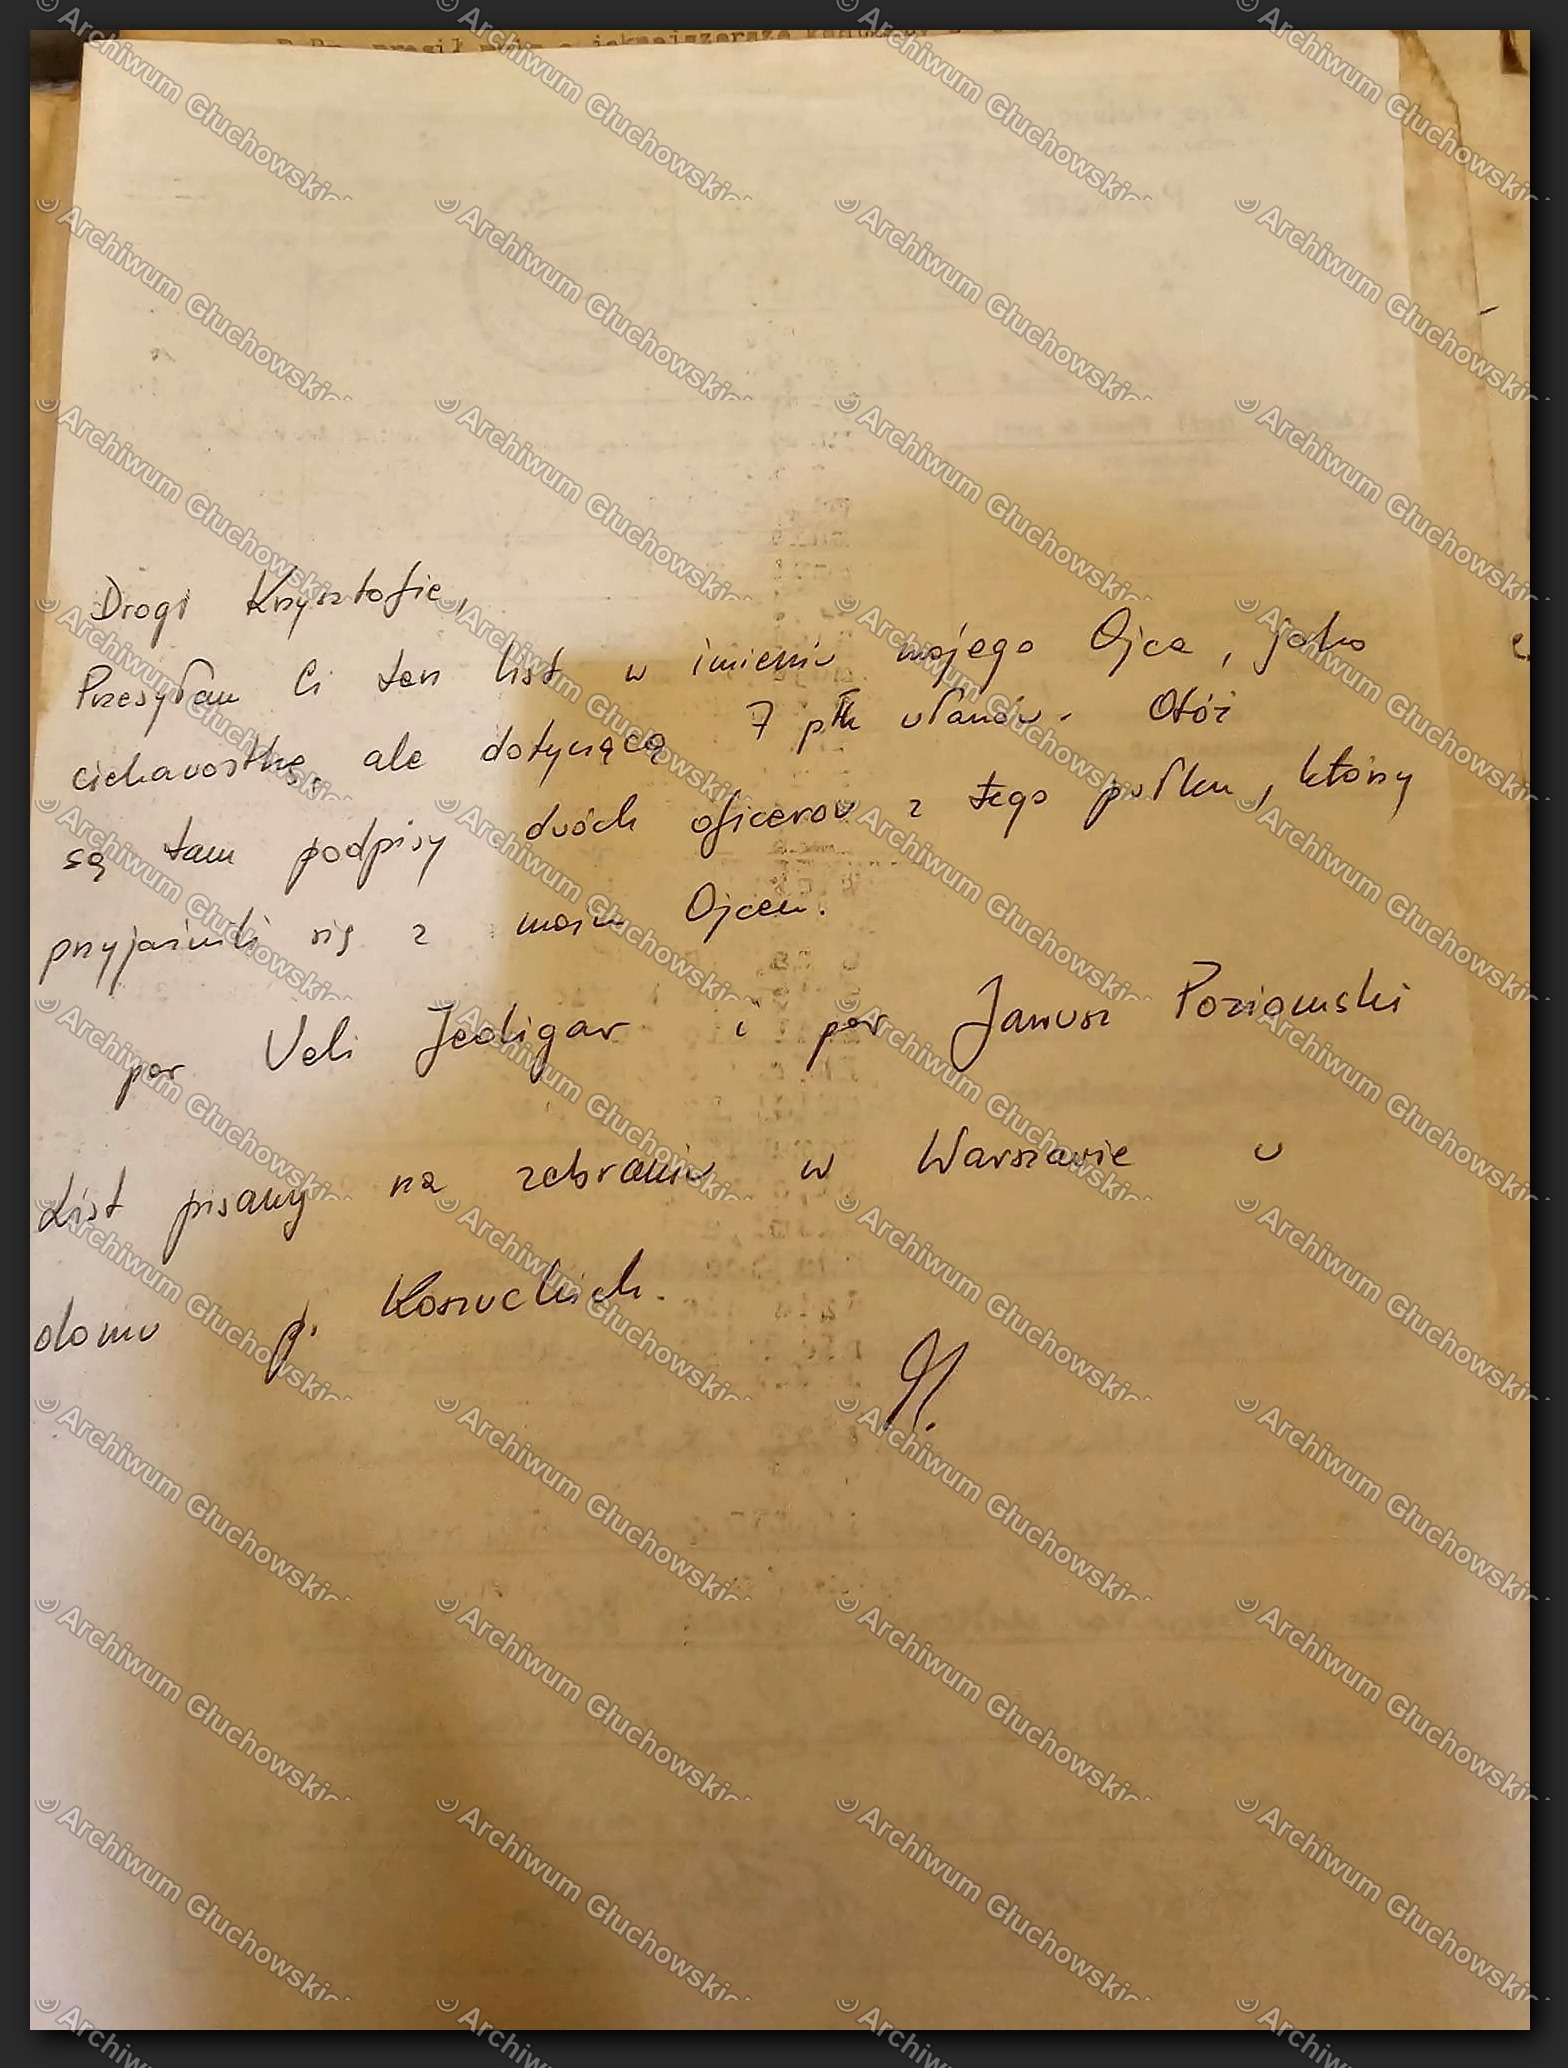 Drogi Krzysztofie,
Przesyłam Ci ten list w imieniu mojego Ojca, jako
ciekawostkę, ale dotyczącą 7 płk ułanów. Otóż
są tam podpisy dwóch oficerów z tego pułku, którzy
przyjaźnili się z moim Ojcem.
por Veli Jedigar i por Janusz Poziomski
List pisany na zebraniu w Warszawie w
domu p. Koszuckich.
© Archiwum Głuchowskich